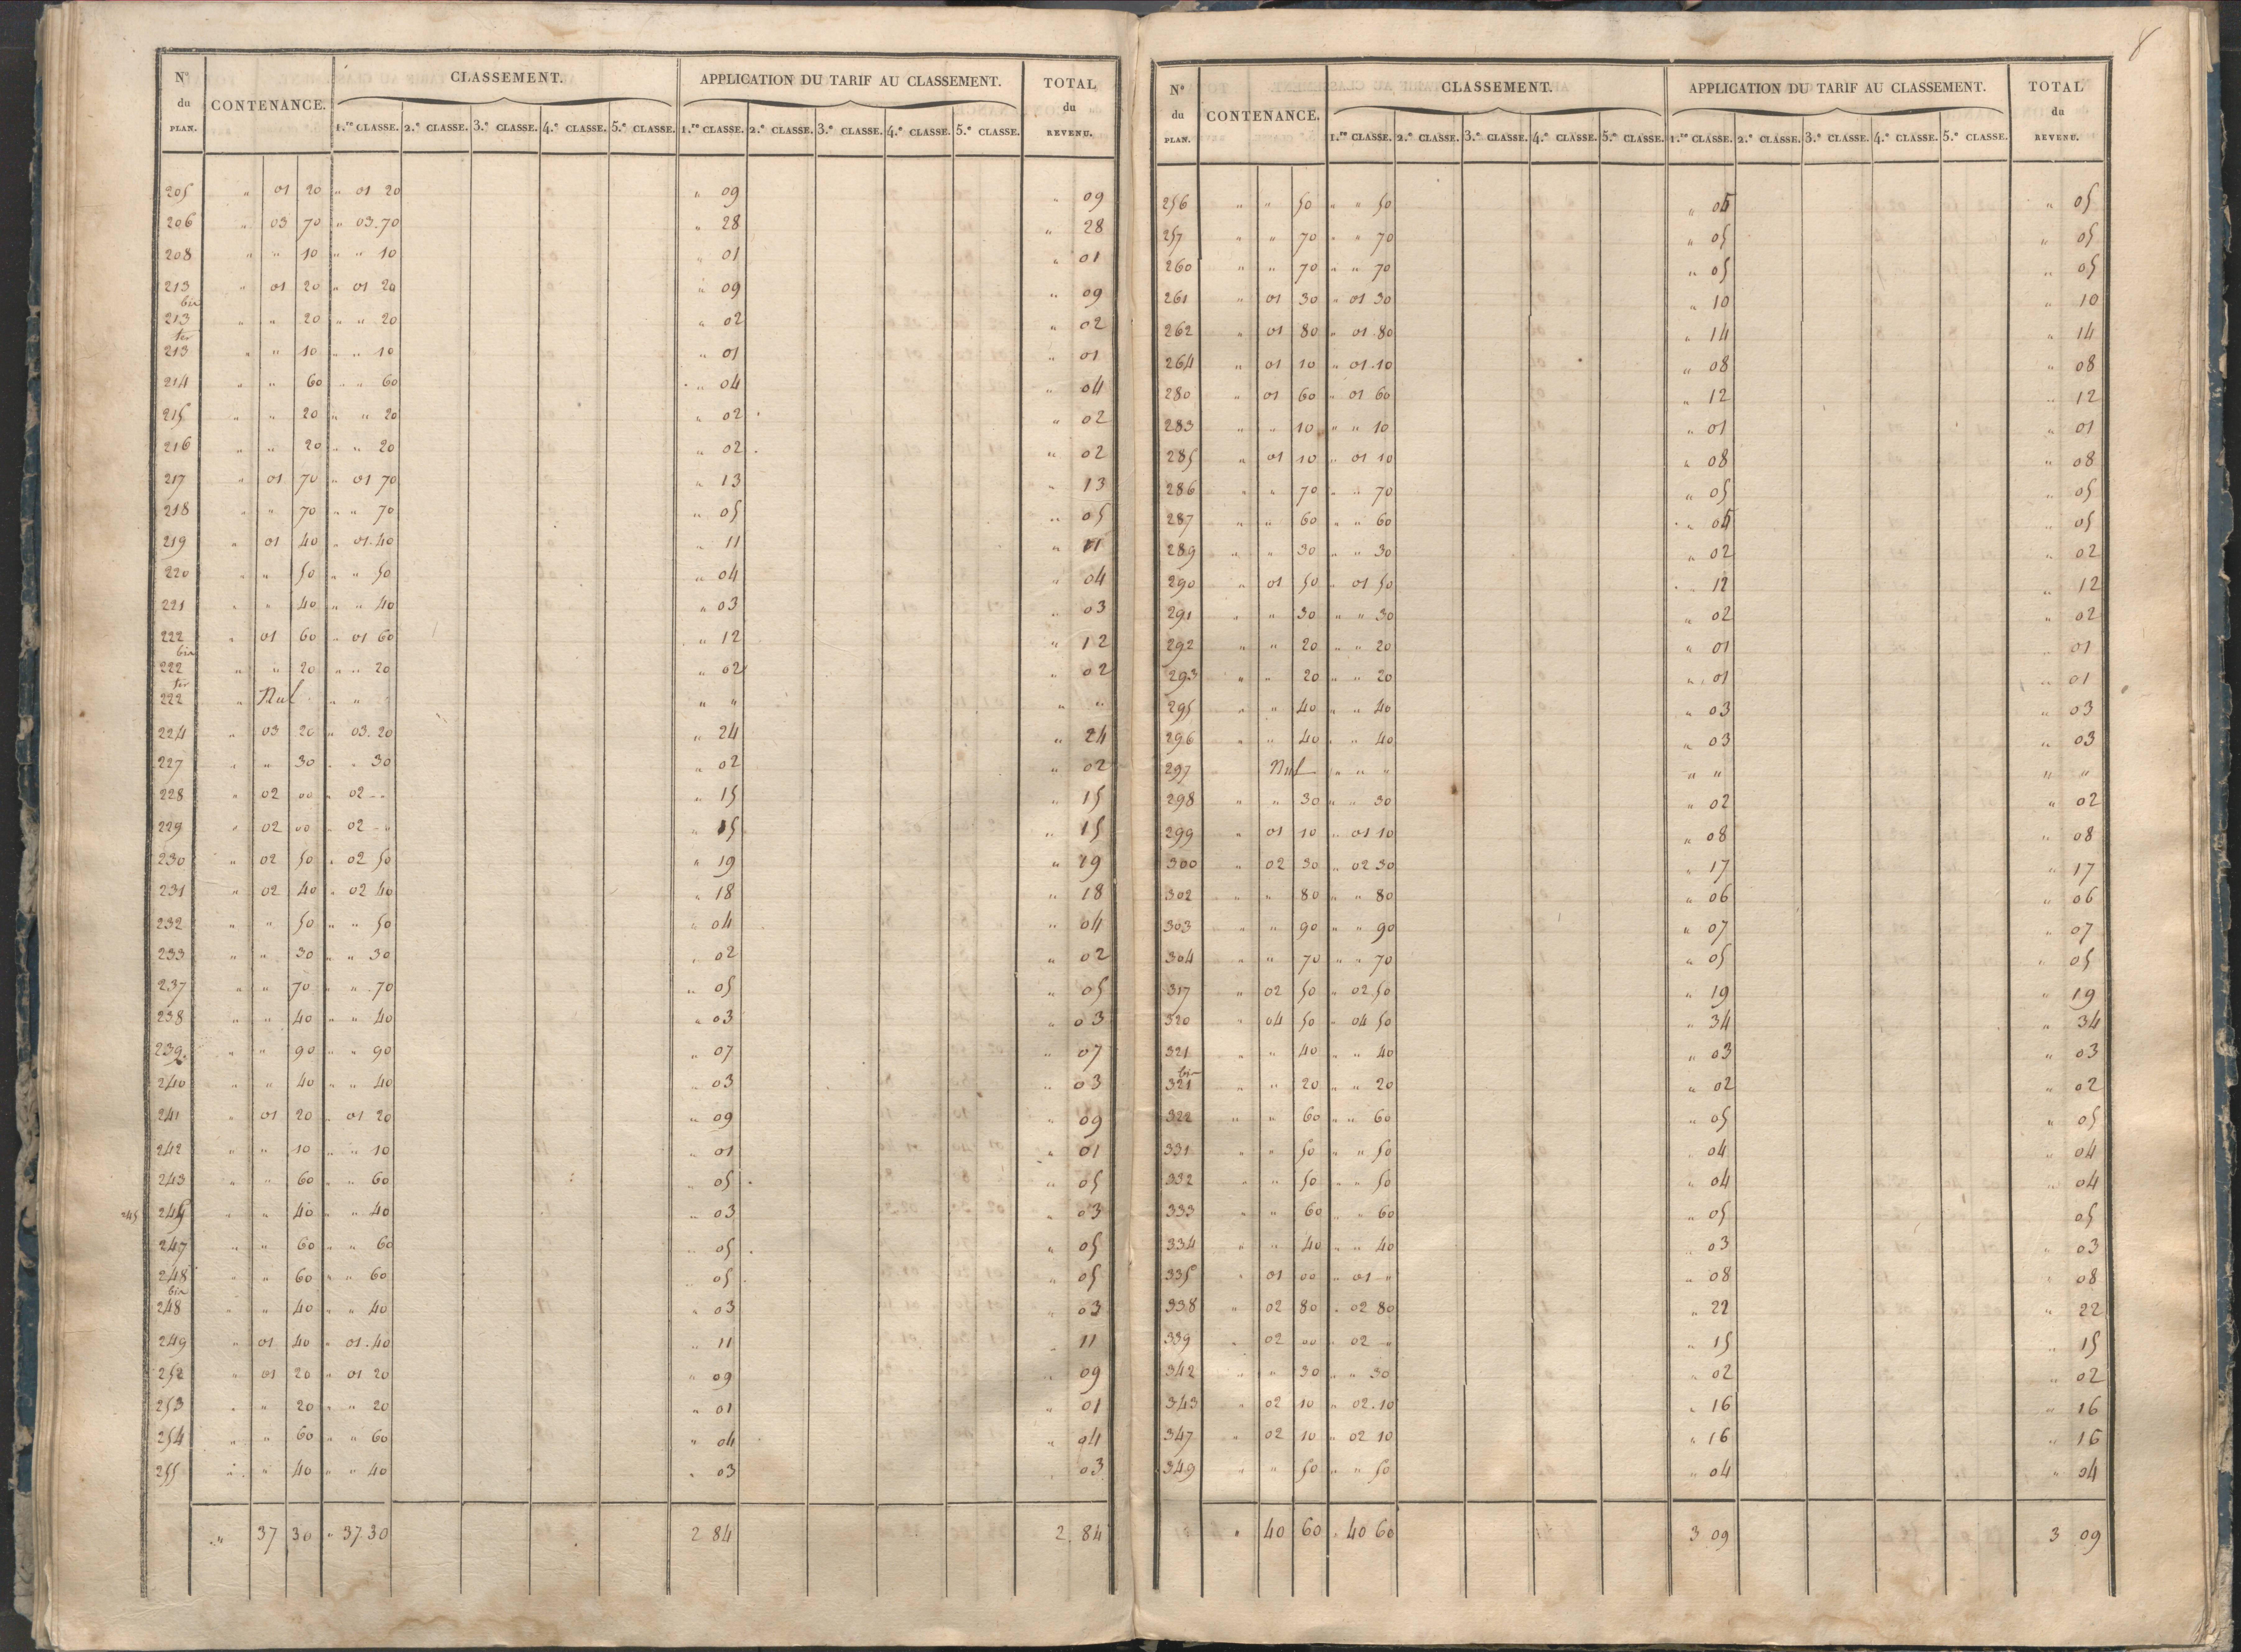 N° du PLAN. CONTENANCE. CLASSEMENT. APPLICATION DU TARIF AU CLASSEMENT. TOTAL du REVENU.
1.re CLASSE. 2.e CLASSE. 3.e CLASSE. 4.e CLASSE. 5.e CLASSE. 1.re CLASSE. 2.e CLASSE. 3.e CLASSE. 4.e CLASSE. 5.e CLASSE.
205 " 01 20 " 01 20 " 09 " 09
206 " 03 70 " 03.70 " 28 " 28
208 " " 10 " " 10 " 01 " 01
213 " 01 20 " 01 20 " 09 " 09
bis 213 " " 20 " " 20 " 02 " 02
ter 213 " " 10 " " 10 " 01 " 01
214 " " 60 " " 60 " 04 " 04
215 " " 20 " " 20 " 02 " 02
216 " " 20 " " 20 " 02 " 02
217 " 01 70 " 01 70 " 13 " 13
218 " " 70 " " 70 " 05 " 05
219 " 01 40 " 01.40 " 11 " 11
220 " " 50 " " 50 " 04 " 04
221 " " 40 " " 40 " 03 " 03
222 " 01 60 " 01 60 " 12 " 12
bis 222 " " 20 " " 20 " 02 " 02
ter 222 " Nul " " " " " "
224 " 03 20 " 03.20 " 24 " 24
227 " " 30 " " 30 " 02 " 02
228 " 02 00 " 02 " " 15 " 15
229 " 02 00 " 02 " " 15 " 15
230 " 02 50 " 02 50 " 19 " 19
231 " 02 40 " 02 40 " 18 " 18
232 " " 50 " " 50 " 04 " 04
233 " " 30 " " 30 " 02 " 02
237 " " 70 " " 70 " 05 " 05
238 " " 40 " " 40 " 03 " 03
239 " " 90 " " 90 " 07 " 07
240 " " 40 " " 40 " 03 " 03
241 " 01 20 " 01 20 " 09 " 09
242 " " 10 " " 10 " 01 " 01
243 " " 60 " " 60 " 05 " 05
245 245 " " 40 " " 40 " 03 " 03
247 " " 60 " " 60 " 05 " 05
248 " " 60 " " 60 " 05 " 05
bis 248 " " 40 " " 40 " 03 " 03
249 " 01 40 " 01.40 " 11 " 11
252 " 01 20 " 01 20 " 09 " 09
253 " " 20 " " 20 " 01 " 01
254 " " 60 " " 60 " 04 " 04
255 " " 40 " " 40 " 03 " 03
" 37 30 " 37.30 2 84 2.84
8
N° du PLAN. CONTENANCE. CLASSEMENT. APPLICATION DU TARIF AU CLASSEMENT. TOTAL du REVENU.
1.re CLASSE. 2.e CLASSE. 3.e CLASSE. 4.e CLASSE. 5.e CLASSE. 1.re CLASSE. 2.e CLASSE. 3.e CLASSE. 4.e CLASSE. 5.e CLASSE.
256 " " 50 " " 50 " 05 " 05
257 " " 70 " " 70 " 05 " 05
260 " " 70 " " 70 " 05 " 05
261 " 01 30 " 01 30 " 10 " 10
262 " 01 80 " 01.80 " 14 " 14
264 " 01 10 " 01.10 " 08 " 08
280 " 01 60 " 01 60 " 12 " 12
283 " " 10 " " 10 " 01 " 01
285 " 01 10 " 01 10 " 08 " 08
286 " " 70 " " 70 " 05 " 05
287 " " 60 " " 60 " 05 " 05
289 " " 30 " " 30 " 02 " 02
290 " 01 50 " 01 50 " 12 " 12
291 " " 30 " " 30 " 02 " 02
292 " " 20 " " 20 " 01 " 01
293 " " 20 " " 20 " 01 " 01
295 " " 40 " " 40 " 03 " 03
296 " " 40 " " 40 " 03 " 03
297 Nul " " " " " " "
298 " " 30 " " 30 " 02 " 02
299 " 01 10 " 01 10 " 08 " 08
300 " 02 30 " 02 30 " 17 " 17
302 " " 80 " " 80 " 06 " 06
303 " " 90 " " 90 " 07 " 07
304 " " 70 " " 70 " 05 " 05
317 " 02 50 " 02.50 " 19 " 19
320 " 04 50 " 04 50 " 34 " 34
321 " " 40 " " 40 " 03 " 03
bis 321 " " 20 " " 20 " 02 " 02
322 " " 60 " " 60 " 05 " 05
331 " " 50 " " 50 " 04 " 04
332 " " 50 " " 50 " 04 " 04
333 " " 60 " " 60 " 05 05
334 " " 40 " " 40 " 03 " 03
335 " 01 00 " 01 " " 08 " 08
338 " 02 80 " 02 80 " 22 " 22
339 " 02 00 " 02 " " 15 " 15
342 " " 30 " " 30 " 02 " 02
343 " 02 10 " 02.10 " 16 " 16
347 " 02 10 " 02 10 " 16 " 16
349 " " 50 " " 50 " 04 " 04
" 40 60 " 40 60 3 09 3 09